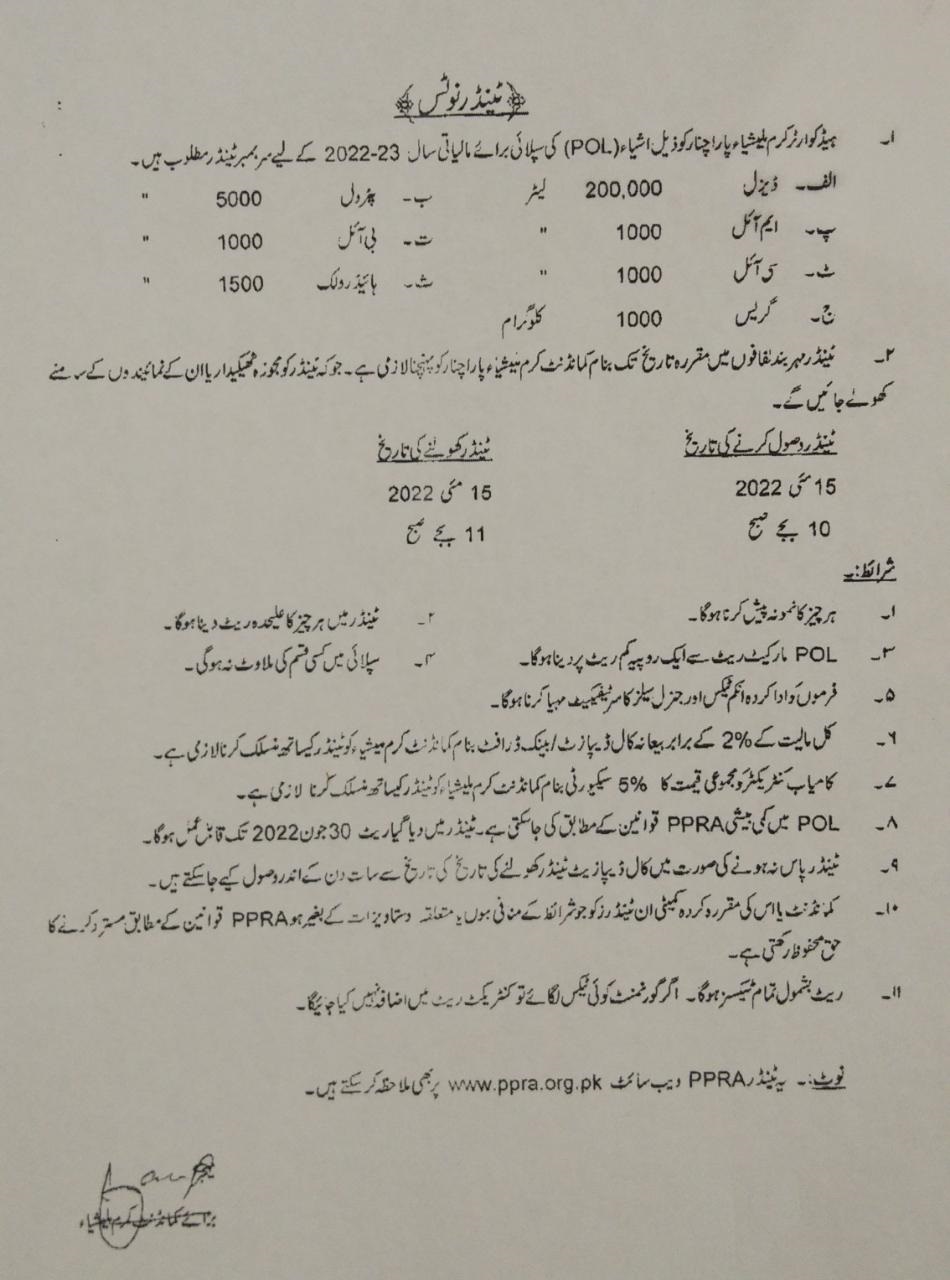 ٹینڈر نوٹس
۱۔ ہیڈ کوارٹر کرم ملیشیاء پاراچنار کو ذیل اشیاء (POL) کی سپلائی برائے مالیاتی سال 2022-23 کے لیے سربمہر ٹینڈر مطلوب ہیں۔
الف۔ ڈیزل 200,000 لیٹر ب۔ پٹرول 5000 "
پ۔ ایم آئل 1000 " ت۔ بی آئل 1000 "
ٹ۔ سی آئل 1000 " ث۔ ہائیڈرولک 1500 "
ج۔ گریس 1000 کلوگرام
۲۔ ٹینڈر مہر بند لفافوں میں مقررہ تاریخ تک بنام کمانڈنٹ کرم ملیشیاء پاراچنار کو پہنچنا لازمی ہے۔ جو کہ ٹینڈر کو مجوزہ ٹھیکیدار یا ان کے نمائیندوں کے سامنے
کھولے جائیں گے۔
ٹینڈر وصول کرنے کی تاریخ ٹینڈر کھولنے کی تاریخ
15 مئی 2022 15 مئی 2022
10 بجے صبح 11 بجے صبح
شرائط:۔
۱۔ ہر چیز کا نمونہ پیش کرنا ہوگا۔ ۲۔ ٹینڈر میں ہر چیز کا علیحدہ ریٹ دینا ہوگا۔
۳۔ POL مارکیٹ ریٹ سے ایک روپیہ کم ریٹ پر دینا ہوگا۔ ۴۔ سپلائی میں کسی قسم کی ملاوٹ نہ ہوگی۔
۵۔ فرموں کو ادا کردہ انکم ٹیکس اور جنرل سیلز کا سرٹیفیکیٹ مہیا کرنا ہوگا۔
۶۔ کل مالیت کے 2% کے برابر بیعانہ کال ڈیپازٹ/بینک ڈرافٹ بنام کمانڈنٹ کرم ملیشیاء کو ٹینڈر کیساتھ منسلک کرنا لازمی ہے۔
۷۔ کامیاب کنٹریکٹر کو مجموعی قیمت کا 5% سیکیورٹی بنام کمانڈنٹ کرم ملیشیاء کو ٹینڈر کیساتھ منسلک کرنا لازمی ہے۔
۸۔ POL میں کمی بیشی PPRA قوانین کے مطابق کی جاسکتی ہے۔ ٹینڈر میں دیا گیا ریٹ 30 جون 2022 تک قابل عمل ہوگا۔
۹۔ ٹینڈر پاس نہ ہونے کی صورت میں کال ڈیپازیٹ ٹینڈر کھولنے کی تاریخ کی تاریخ سے سات دن کے اندر وصول کیے جاسکتے ہیں۔
۱۰۔ کمانڈنٹ یا اس کی مقرر کردہ کمیٹی ان ٹینڈرز کو جو شرائط کے منافی ہوں یا متعلقہ دستاویزات کے بغیر ہو PPRA قوانین کے مطابق مسترد کرنے کا
حق محفوظ رکھتی ہے۔
۱۱۔ ریٹ بشمول تمام ٹیکسز ہوگا۔ اگر گورنمنٹ کوئی ٹیکس لگائے تو کنٹریکٹ ریٹ میں اضافہ نہیں کیا جائیگا۔
نوٹ:۔ یہ ٹینڈر PPRA ویب سائٹ www.ppra.org.pk پر بھی ملاحظہ کر سکتے ہیں۔
میجر
برائے کمانڈنٹ کرم ملیشیاء